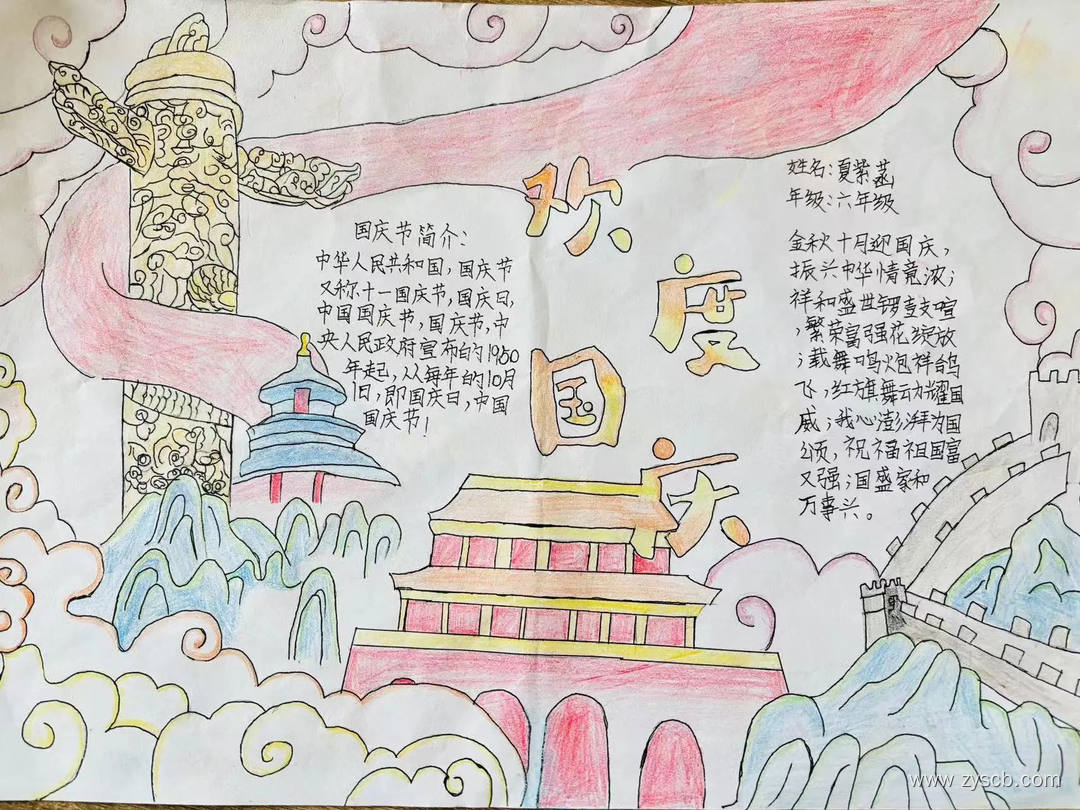 欢度国庆
国庆节简介:
中华人民共和国,国庆节
又称十一国庆节,国庆日,
中国国庆节,国庆节,中
央人民政府宣布的1950
年起,从每年的10月
1日,即国庆日,中国
国庆节!
姓名:夏紫菡
年级:六年级
金秋十月迎国庆,
振兴中华情意浓;
祥和盛世锣鼓喧
,繁荣富强花绽放
;载舞鸣炮祥鸽
飞,红旗舞动耀国
威;我心澎湃为国
颂,祝福祖国富
又强;国盛家和
万事兴。
www.zyscb.com